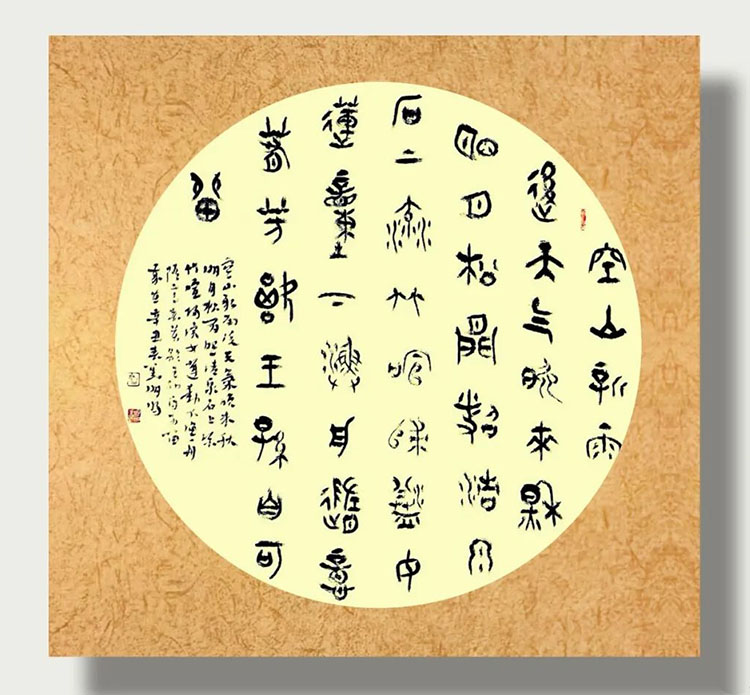 空山新雨
後天气晚來秋
明月松間照清泉
石上流竹喧歸浣女
蓮動下漁舟隨意
春芳歇王孫自可
留
空山新雨後天氣晚來秋
明月松間照清泉石上流
竹喧歸浣女蓮動下漁舟
隨意春芳歇王孫自可留
歲在辛丑春